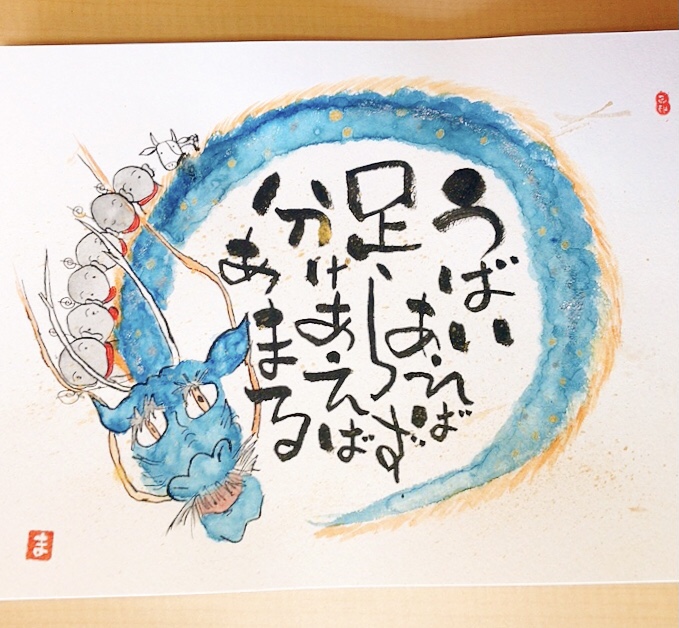 うばい
あえば
足らず
分けあえば
あまる
ま